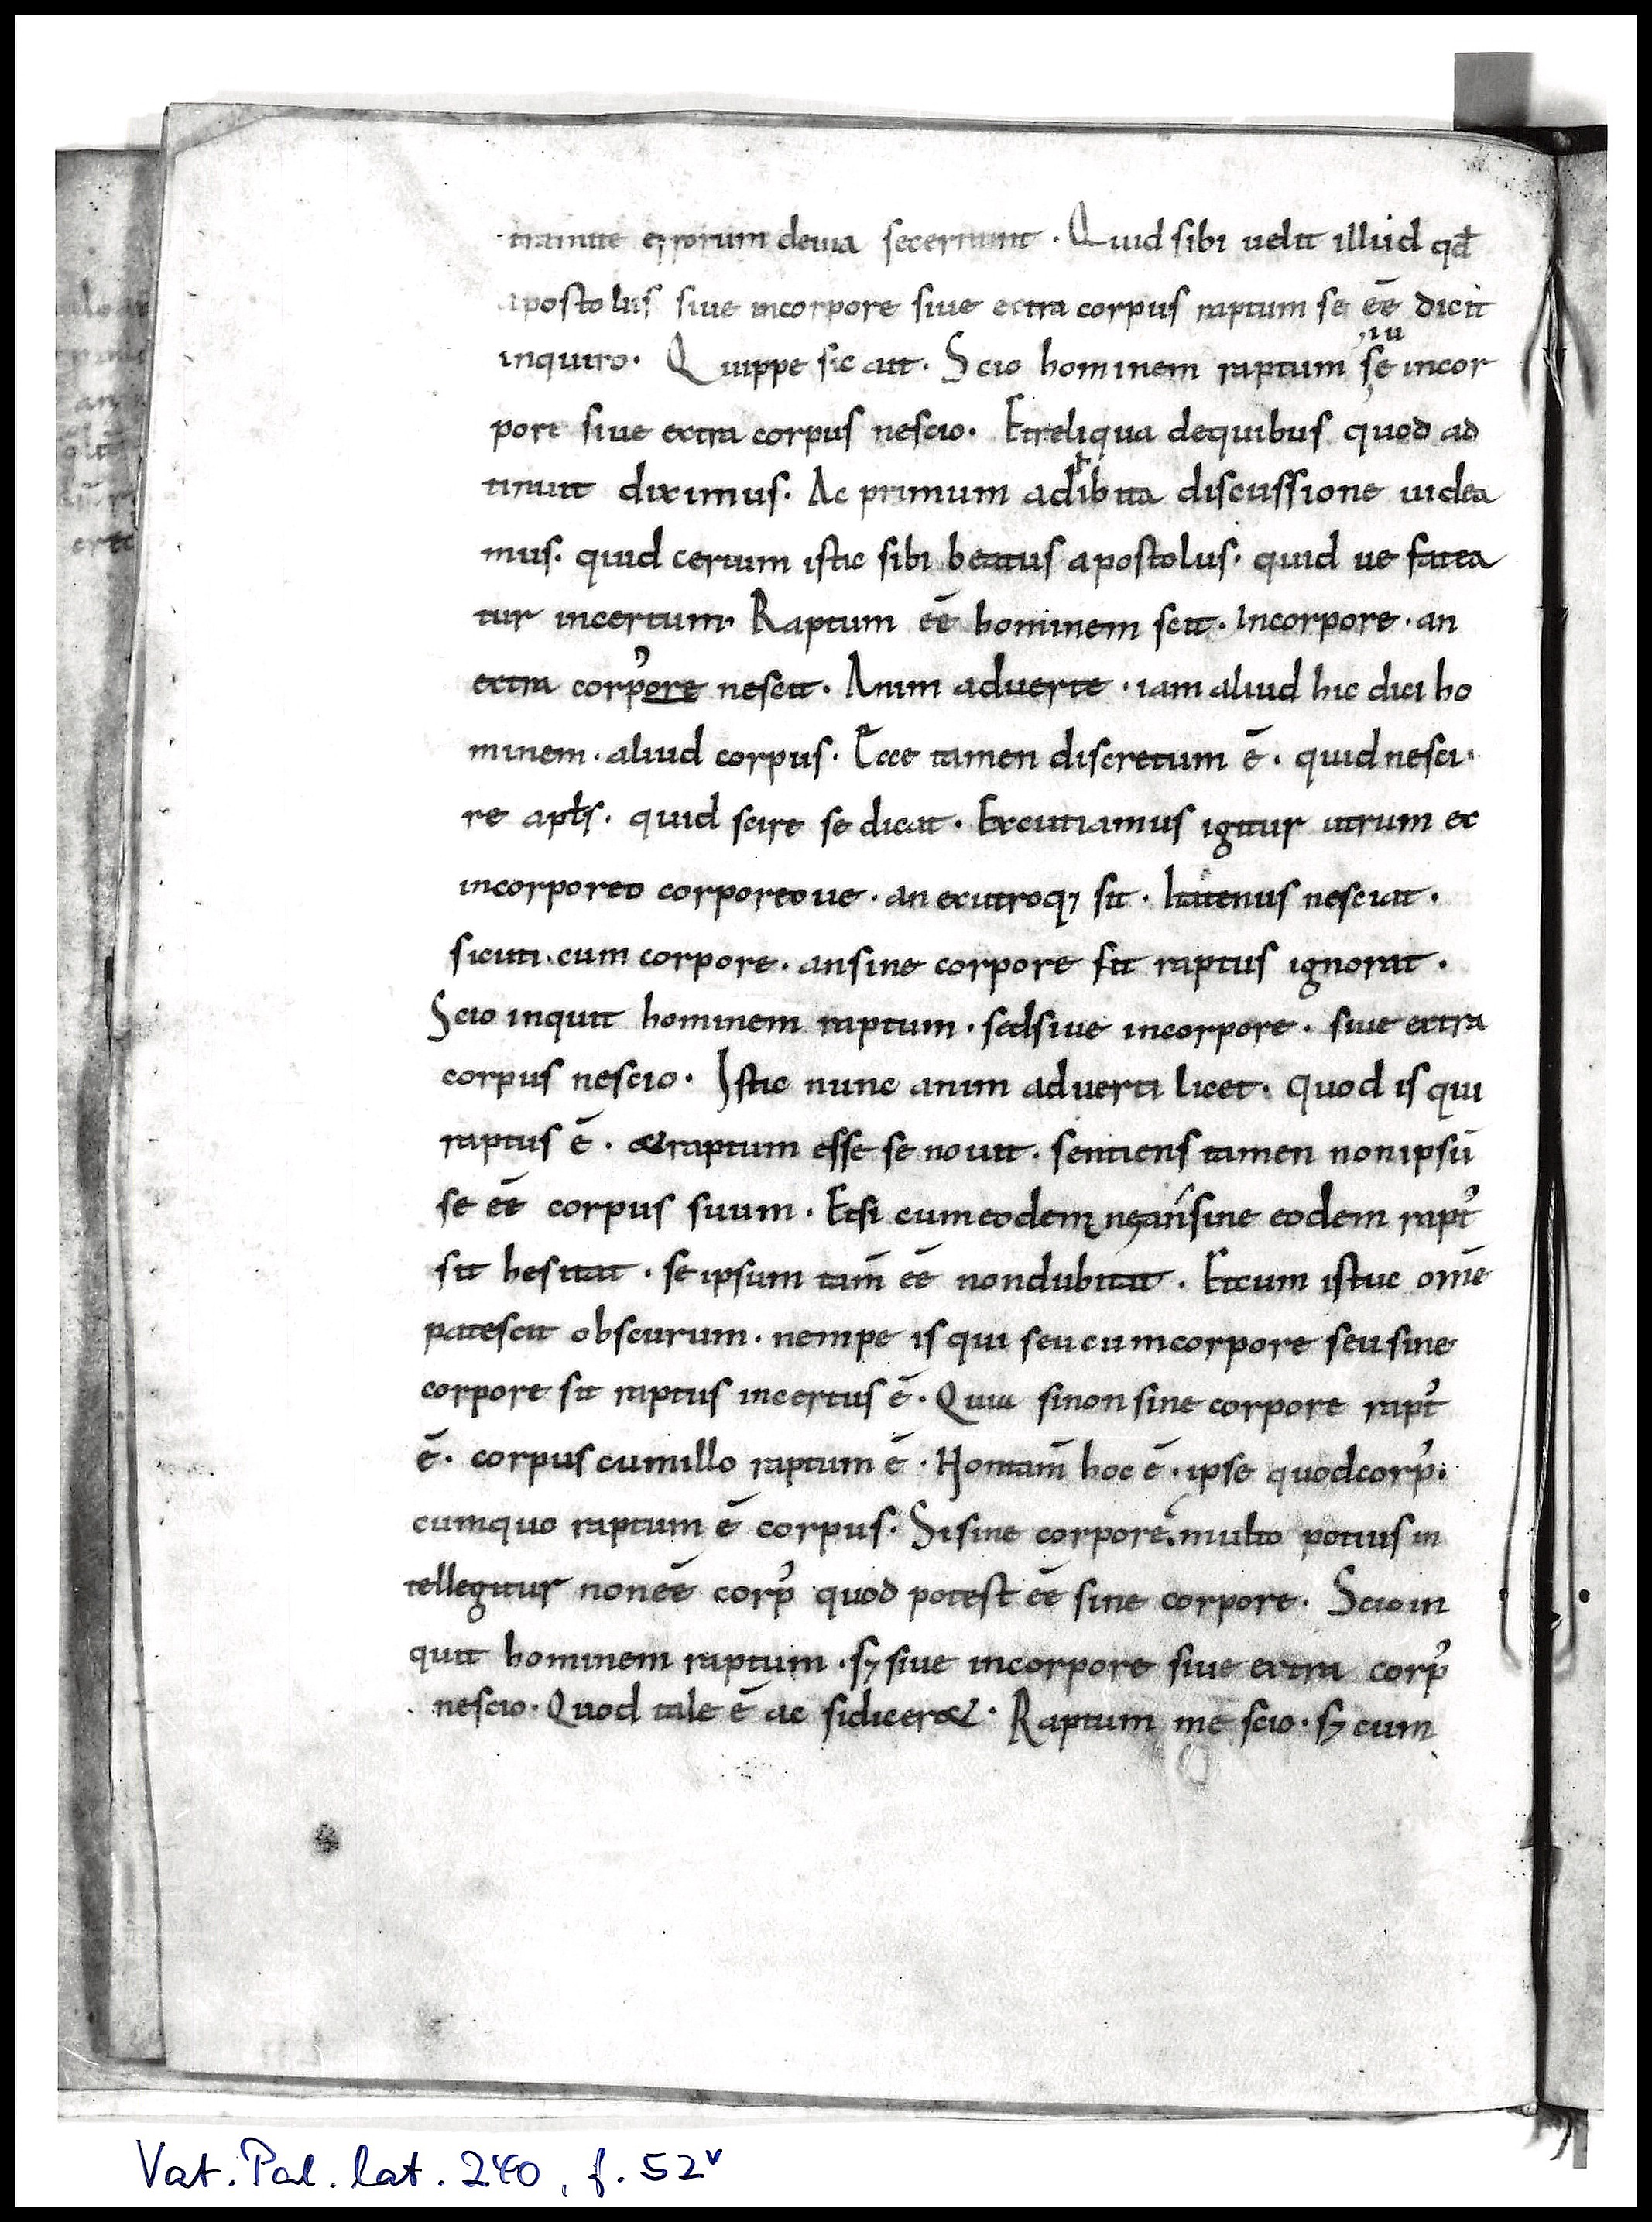 tramite errorum deuia secernunt · Quid sibi uelit illud qđ
apostolus siue incorpore siue extra corpus raptum se eē dicit
inquiro· Quippe sic ait · Scio hominem raptum se incor
iu
pore siue extra corpus nescio· Et reliqua dequibus quod ad
tinuit diximus· Ac primum adibita discussione uidea
mus· quid certum istic sibi beatus apostolus· quid ue fatea
tur incertum· Raptum eē hominem scit · Incorpore · an
extra corp'ore nescit · Anim aduerte · iam aliud hic dici ho
minem · aliud corpus · Ecce tamen discretum ē · quid nesci·
re apłs · quid scire se dicat · Excutiamus igitur utrum ex
incorporeo corporeo ue · an exutroq; sit · Hactenus nesciat ·
sicuti · cum corpore · ansine corpore sit raptus ignorat ·
Scio inquit hominem raptum · sedsiue incorpore · siue extra
corpus nescio · Istic nunc anim aduerti licet · quod is qui
raptus ē · & raptum esse se nouit · sentiens tamen nonipsū
se eē corpus suum · Etsi cumeodem sine eodem rapt'
sit hesitat · se ipsum tam̄ eē nondubitat · Etcum istuc om̄e
patescit obscurum · nempe is qui seucumcorpore seusine
corpore sit raptus incertus ē · Quia sinon sine corpore rapt'
ē · corpus cumillo raptum ē · Nontam̄ hoc ē · ipse quodcorp'·
cumquo raptum ē corpus · Sisine corpore · multo potius in
tellegitur noneē corp' quod potest eē sine corpore · Scioin
quit hominem raptum · s; siue incorpore siue extra corp'
nescio · Quod tale ē ac sidicer& · Raptum me scio · s; cum
Vat. Pal. lat. 240, f. 52v